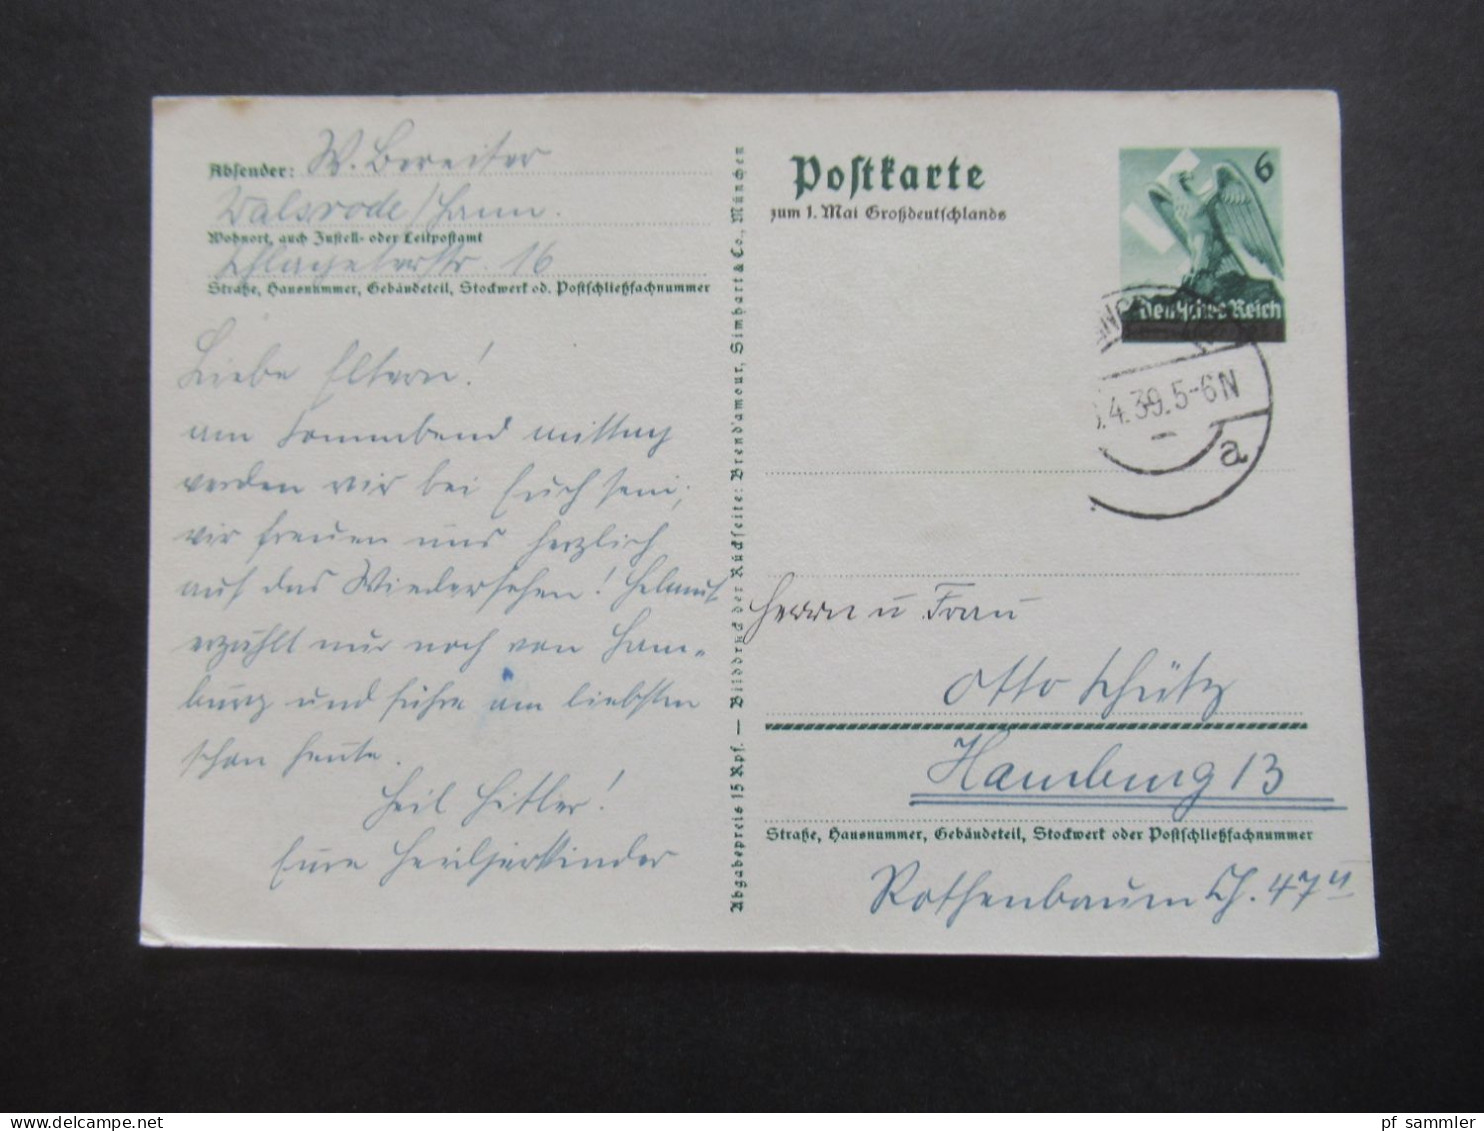 Absender: W. Bereiter
Walsrode/Hann.
Wohnort, auch Zustell- oder Leitpostamt
Schlageterstr. 16
Straße, Hausnummer, Gebäudeteil, Stockwerk od. Postschließfachnummer
Liebe Eltern!
am Sonnabend mittag
werden wir bei Euch sein;
wir freuen uns herzlich
auf das Wiedersehen! Helmut
erzählt nur noch von Ham-
burg und führe am liebsten
schon heute.
Heil Hitler!
Eure
Abgabepreis 15 Rpf. — Bilddruck der Rückseite: Brend'amour, Simhart & Co., München
Postkarte
zum 1. Mai Großdeutschlands
6
Deutsches Reich
.4.39.5-6N
a
Herrn u Frau
Otto Schütz
Hamburg 13
Straße, Hausnummer, Gebäudeteil, Stockwerk oder Postschließfachnummer
Rothenbaum Ch. 47 II
www.delcampe.net
pf_sammler